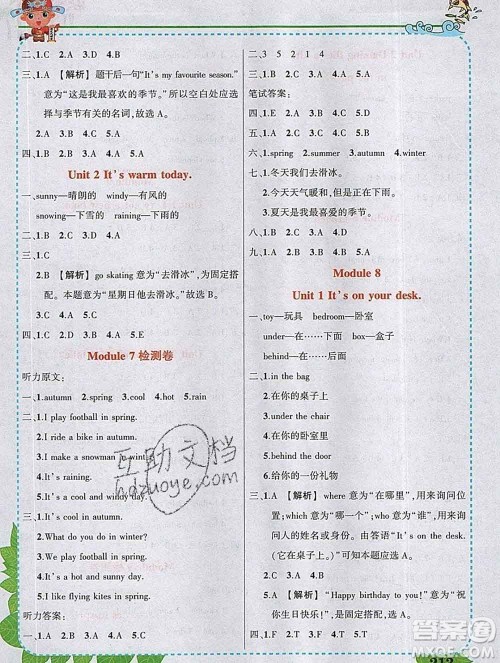 二、1.C 2.A 3.A 4.B
三、1.A 【解析】题干后一句“It's my favourite season.”
意为“这是我最喜欢的季节。”所以空白处应选
择与季节有关的名词,故选A。
2.B 3.C 4.C 5.A
四、1.A 2.B 3.B 4.A
Unit 2 It's warm today.
一、sunny—晴朗的 windy—有风的
snowing—下雪的 raining—下雨的
二、1.C 2.D 3.A 4.B
三、1.A
2.B 【解析】go skating 意为“去滑冰”,为固定搭
配。本题意为“星期日他去滑冰。”故选B。
3.C 4.C 5.A
四、1.C 2.B 3.A 4.D 5.E
Module 7 检测卷
听力原文:
一、1.autumn 2.spring 3.cool 4.hot 5.rain
二、1.I play football in spring.
2.I ride a bike in autumn.
3.I make a snowman in
4.It's raining.
5.It's a cool and windy day.
三、1.It's cool in autumn.
2.What do you do in winter?
3.We play football in spring.
4.It's raining and cold.
5.I like flying kites in spring.
听力答案:
一、1.A 2.A 3.B 4.A 5.A
二、3 5 2 1 4
三、1.B 2.B 3.A 4.B 5.A
笔试答案:
四、1.E 2.D 3.B 4.C 5.A
五、1.A 2.B 3.C 4.A
六、1.spring 2.summer 3.autumn 4.winter
七、1.冬天我们去滑冰。
2.今天天气暖和,但是正在下雨。
3.夏天是我最喜爱的季节。
八、1.A 2.C 3.B 4.C 5.A
九、1.A 2.C 3.C 4.B
Module 8
Unit 1 It's on your desk.
一、toy—玩具 bedroom—卧室
under—在……下面 box—盒子
behind—在……后面
二、1.in the bag
2.在你的桌子上
3.under the chair
4.在你的卧室里
5.behind the door
6.给你的一份礼物
三、1.A 【解析】where 意为“在哪里”,用来询问位
置;which 意为“哪一个”;what 意为“什么”,用来询
问人的姓名或身份。由答语“It's on your desk.
(它在你的桌子上。)”可知本题应选A。
2.C 3.B 4.A
5.A 【解析】“Happy birthday to you!”意为“祝你
生日快乐!”;to 意为“对于”,为固定用法。故选A。
四、1.B 2.A 3.C 4.D 5.E
互助文档
hdzuoye.com
作业帮
MXQE.COM